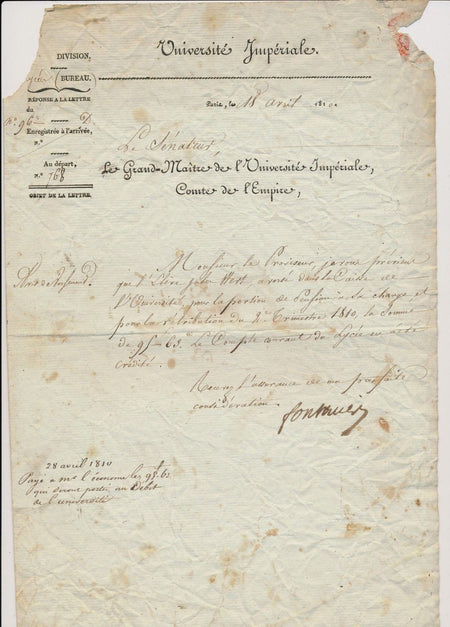 Université Impériale.
DIVISION,
BUREAU.
RÉPONSE A LA LETTRE
du
N.° 96
Enregistrée à l'arrivée,
N.°
Au départ,
N.° 768
OBJET DE LA LETTRE.
Paris, le 18 avril 1810.
Le Sénateur,
Le Grand-Maître de l'Université Impériale,
Comte de l'Empire,
Monsieur le Proviseur, je vous préviens
que l'Elève a versé dans la Caisse de
l'Université, pour la portion de Pension à sa charge et
pour la rétribution du 2e Trimestre 1810, la somme
de 95f 63. Le Compte courant du Lycée en a été
crédité.
Recevez l'assurance de ma parfaite
considération.
Fontanes
28 avril 1810
Payé à mr l'économe les 95f 63
qui seront portés au Débit
de l'université